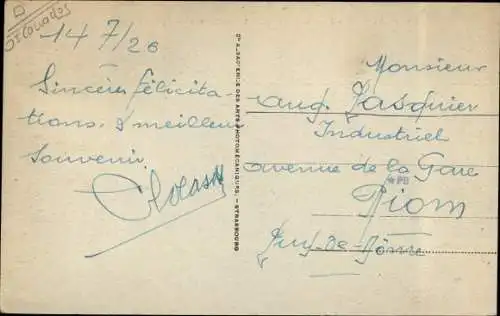 Calvados
14 7/26
Sincères félicita-
tions & meilleur
souvenir
Cie ALSACIENNE DES ARTS PHOTOMÉCANIQUES - STRASBOURG
Monsieur
aug. Jasquier
Industriel
avenue de la Gare
Riom
Puy-de-Dôme